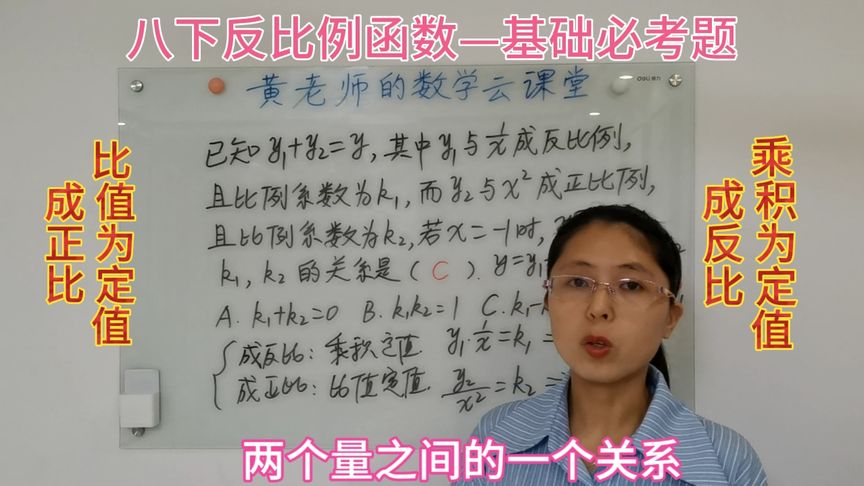 八下反比例函数—基础必考题
黄老师的数学云课堂
比值为定值
成正比
乘积为定值
成反比
已知y₁+y₂=y,其中y₁与1/x成反比例,
且比例系数为k₁,而y₂与x²成正比例,
且比例系数为k₂,若x=-1时,
k₁,k₂的关系是(C).y=y₁
A. k₁+k₂=0 B. k₁k₂=1 C. k₁-
成反比:乘积定值. y₁·1/x=k₁ =
成正比:比值定值. y₂/x²=k₂ =
两个量之间的一个关系